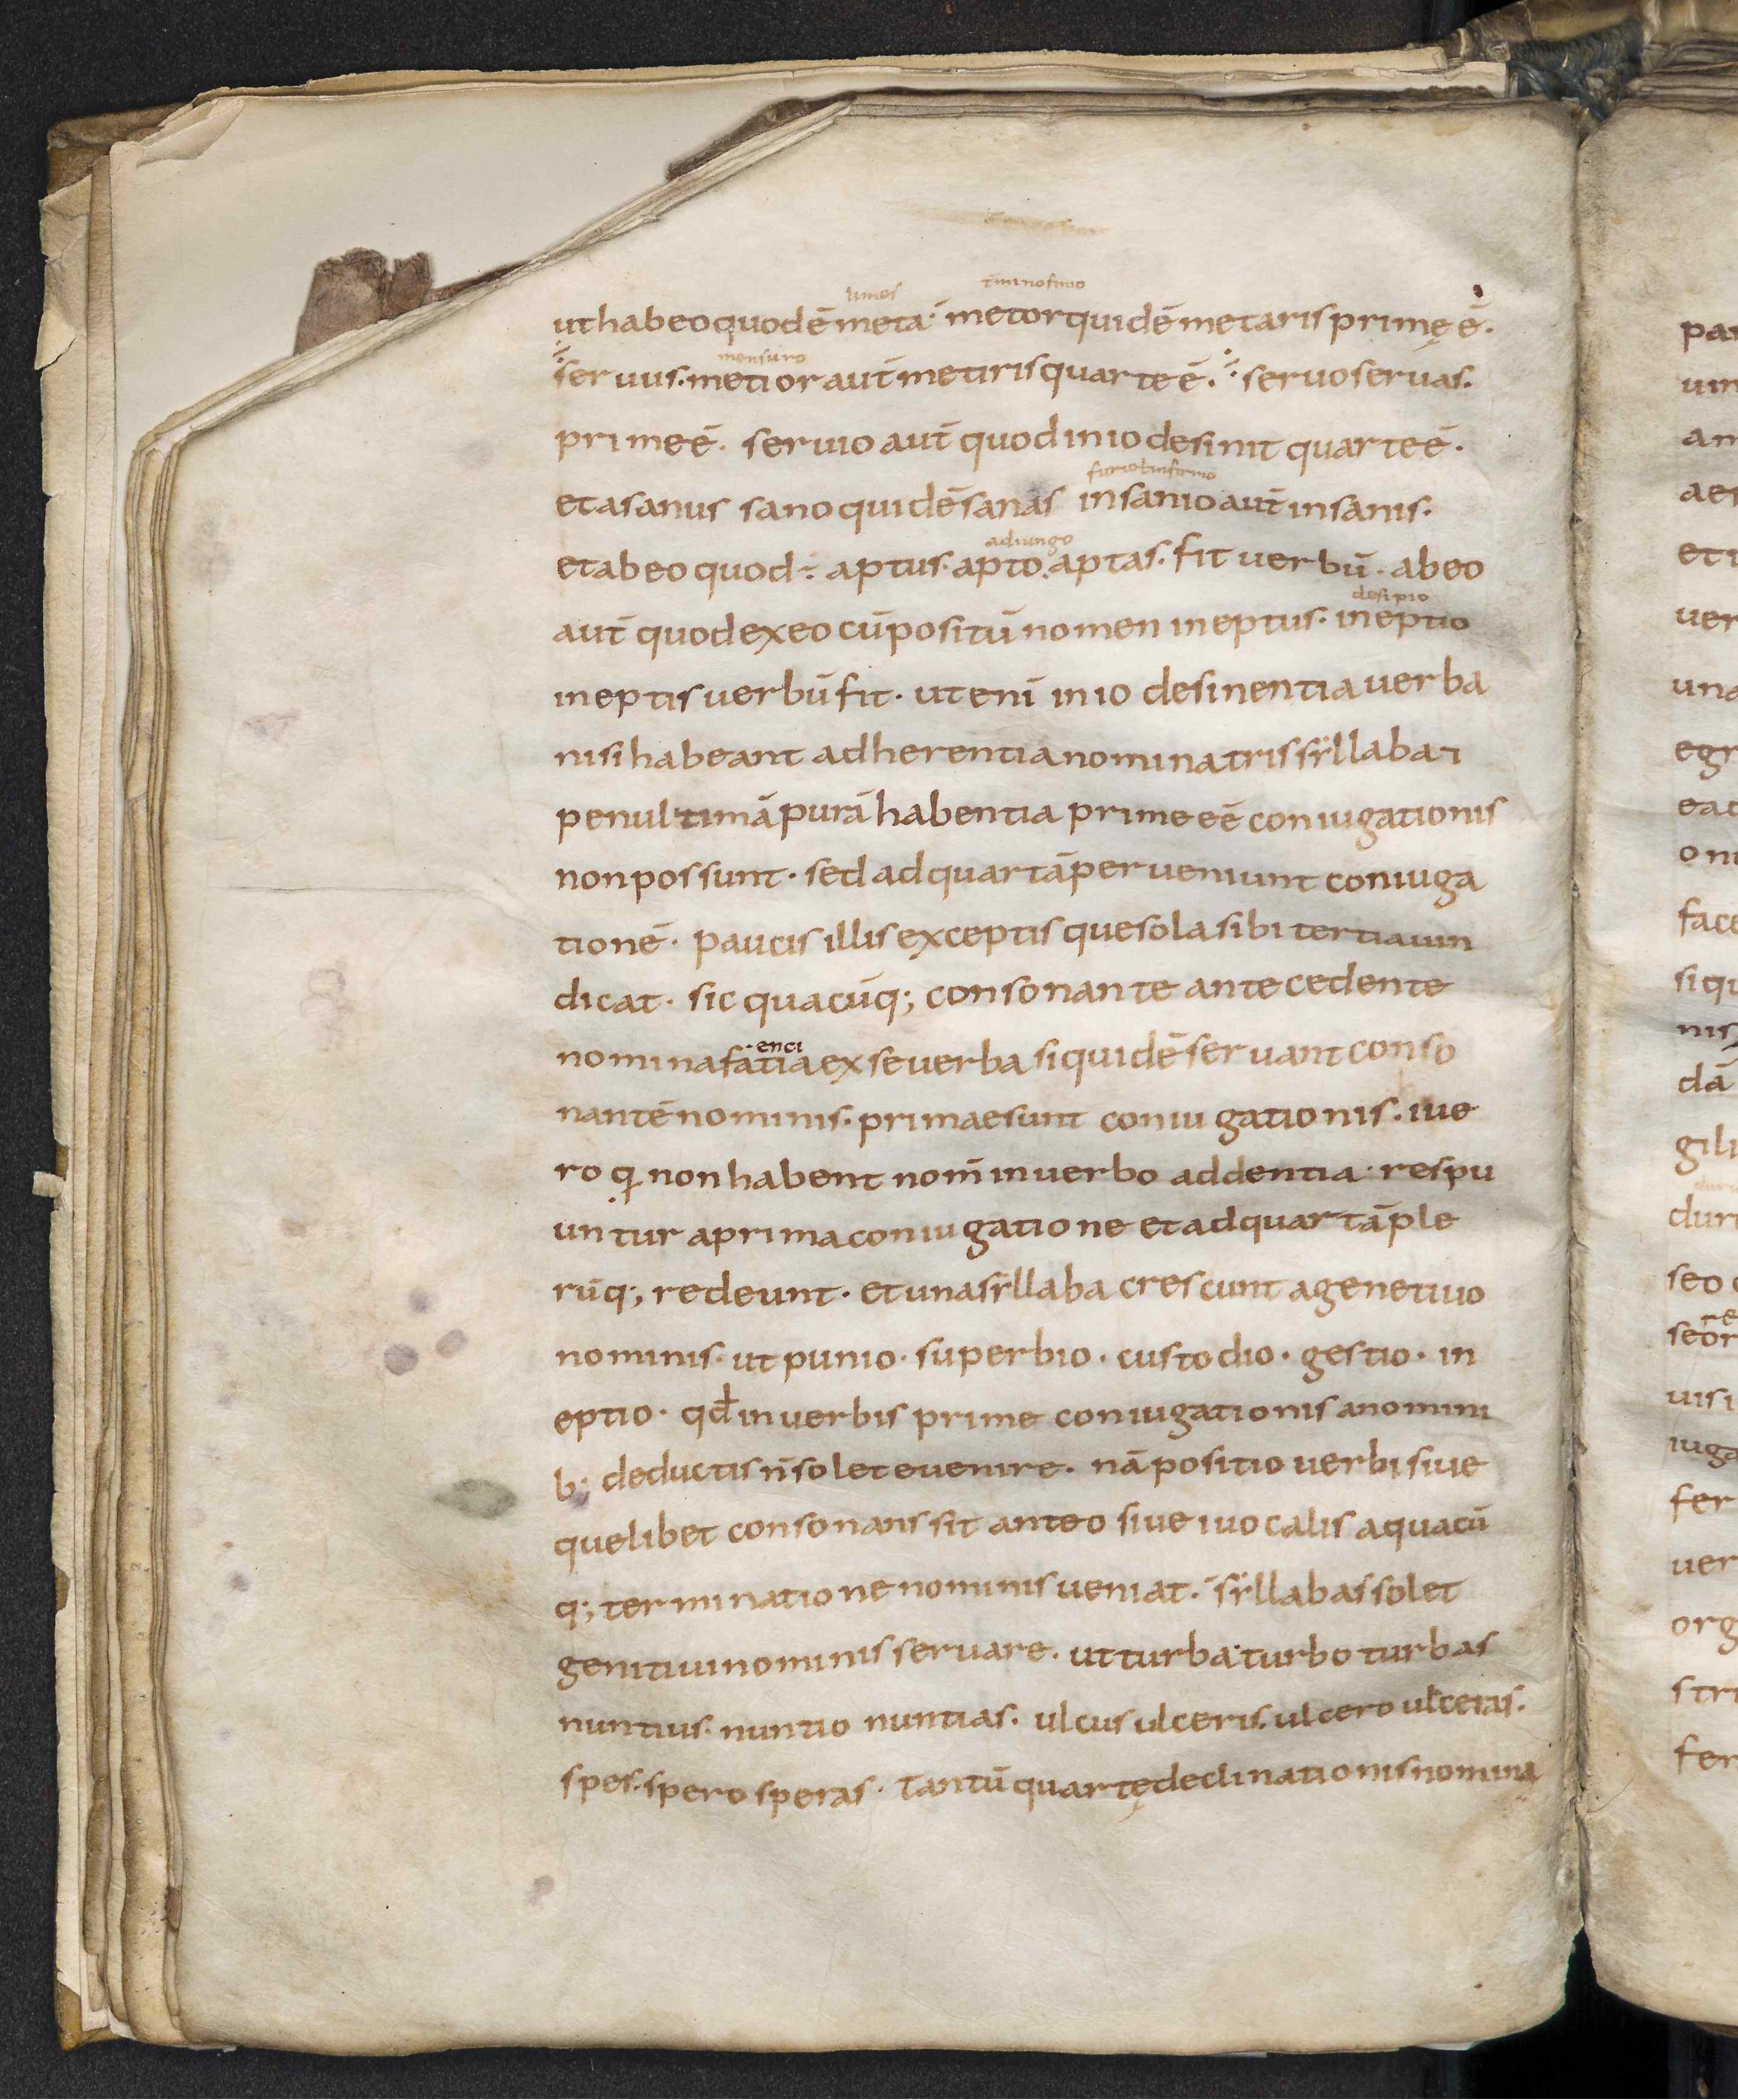 limes tminofinio
ut habeo quod ē meta· metor quidē metaris primę ē·
mensuro
seruus· metior aut̄ metiris quarte ē· seruo seruas·
prime ē· seruio aut̄ quod in io desinit quarte ē·
furio l infirmo
et a sanus sano quidē sanas insanio aut̄ insanis·
adiungo
et ab eo quod ÷ aptus· apto· aptas· fit uerbū· ab eo
desipio
aut̄ quod ex eo cūpositū nomen ineptus· ineptio
ineptis uerbū fit· ut eni̅ in io desinentia uerba
nisi habeant adherentia nomina tris syllaba
penultimā purā habentia prime eē coniugationis
non possunt· sed ad quartā perueniunt coniuga
tionē· paucis illis exceptis que sola sibi tertia uin
dicat· sic quacūq; consonante antecedente
enci
nomina fatia ex se uerba siquidē seruant conso
nantē nominis· primae sunt coniugationis· i ue
ro q non habent nom̄ in uerbo addentia· respu
untur a prima coniugatione et ad quartā ple
rūq; redeunt· et una syllaba crescunt a genetiuo
nominis· ut punio· superbio· custodio· gestio· in
eptio· qđ in uerbis prime coniugationis a nomini
b; deductis n̄ solet euenire· nā positio uerbi siue
quelibet consonans sit ante o siue i uocalis a quacū
q; terminatione nominis ueniat· syllabas solet
genitiui nominis seruare· ut turba· turbo turbas
nuntius· nuntio nuntias· ulcus ulceris· ulcero ulceras·
spes· spero speras· Tantū quartę declinationis nomina
par
um
am
aes
et i
uer
una
egr
ead
om
face
siqu
nis
dā
gili
duri
seo
re
seor
uisi
iuga
fer
uer
org
stri
fer